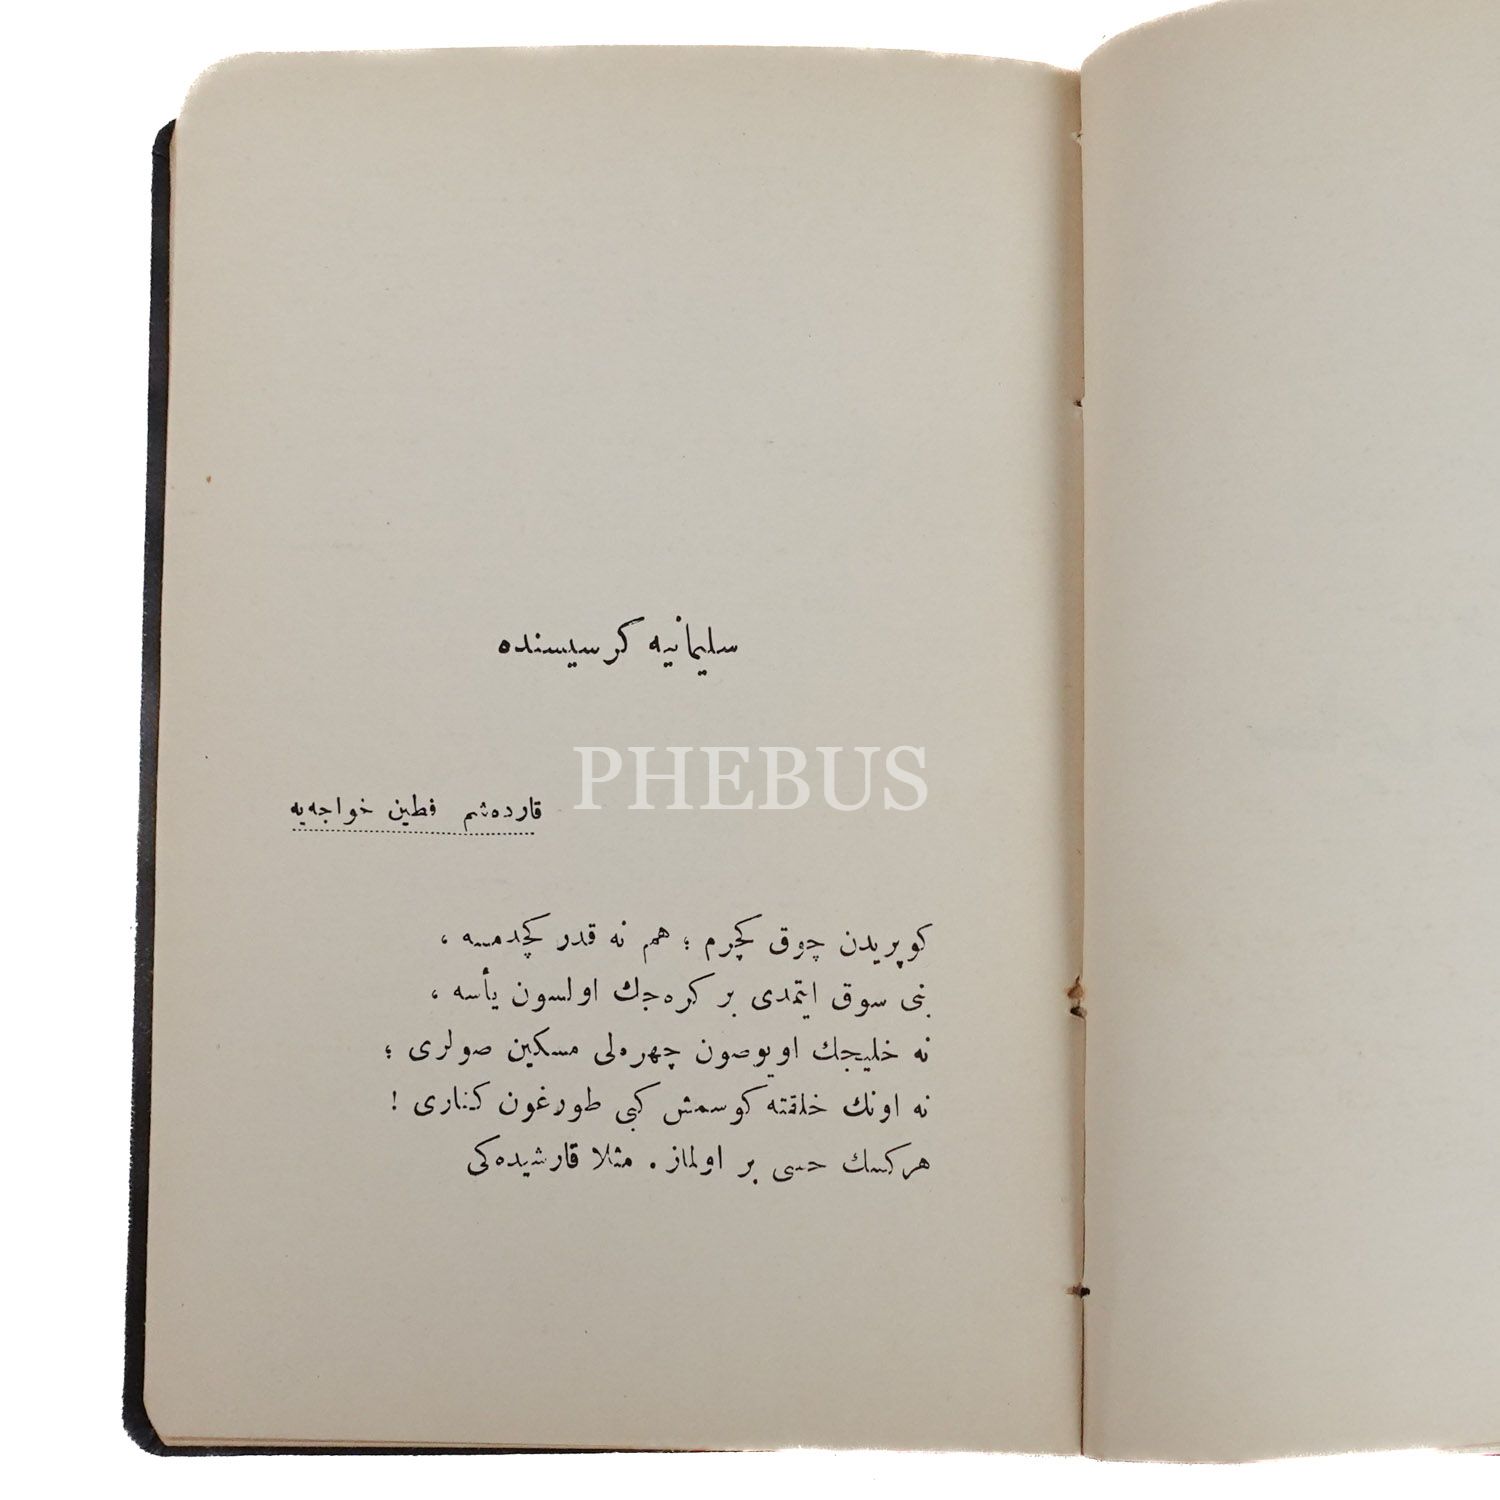 سليمانيه كرسيسنده
PHEBUS
قارده‌شم فطين خواجه‌يه
كوپريدن چوق كچرم ؛ هم نه قدر كچدمسه ،
بنى سوق ايتمدى بر كره‌جك اولسون يأسه ،
نه خليجك اويوصون چهره‌لى مسكين صولرى ؛
نه اونك خلقته كوسمش كبى طورغون كنارى !
هركسك حسى بر اولماز . مثلا قارشيده‌كى